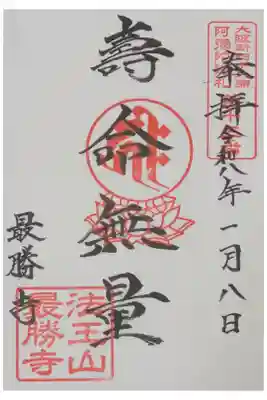 奉拝 令和八年一月八日
壽命無量
最勝寺
法王山
最勝寺